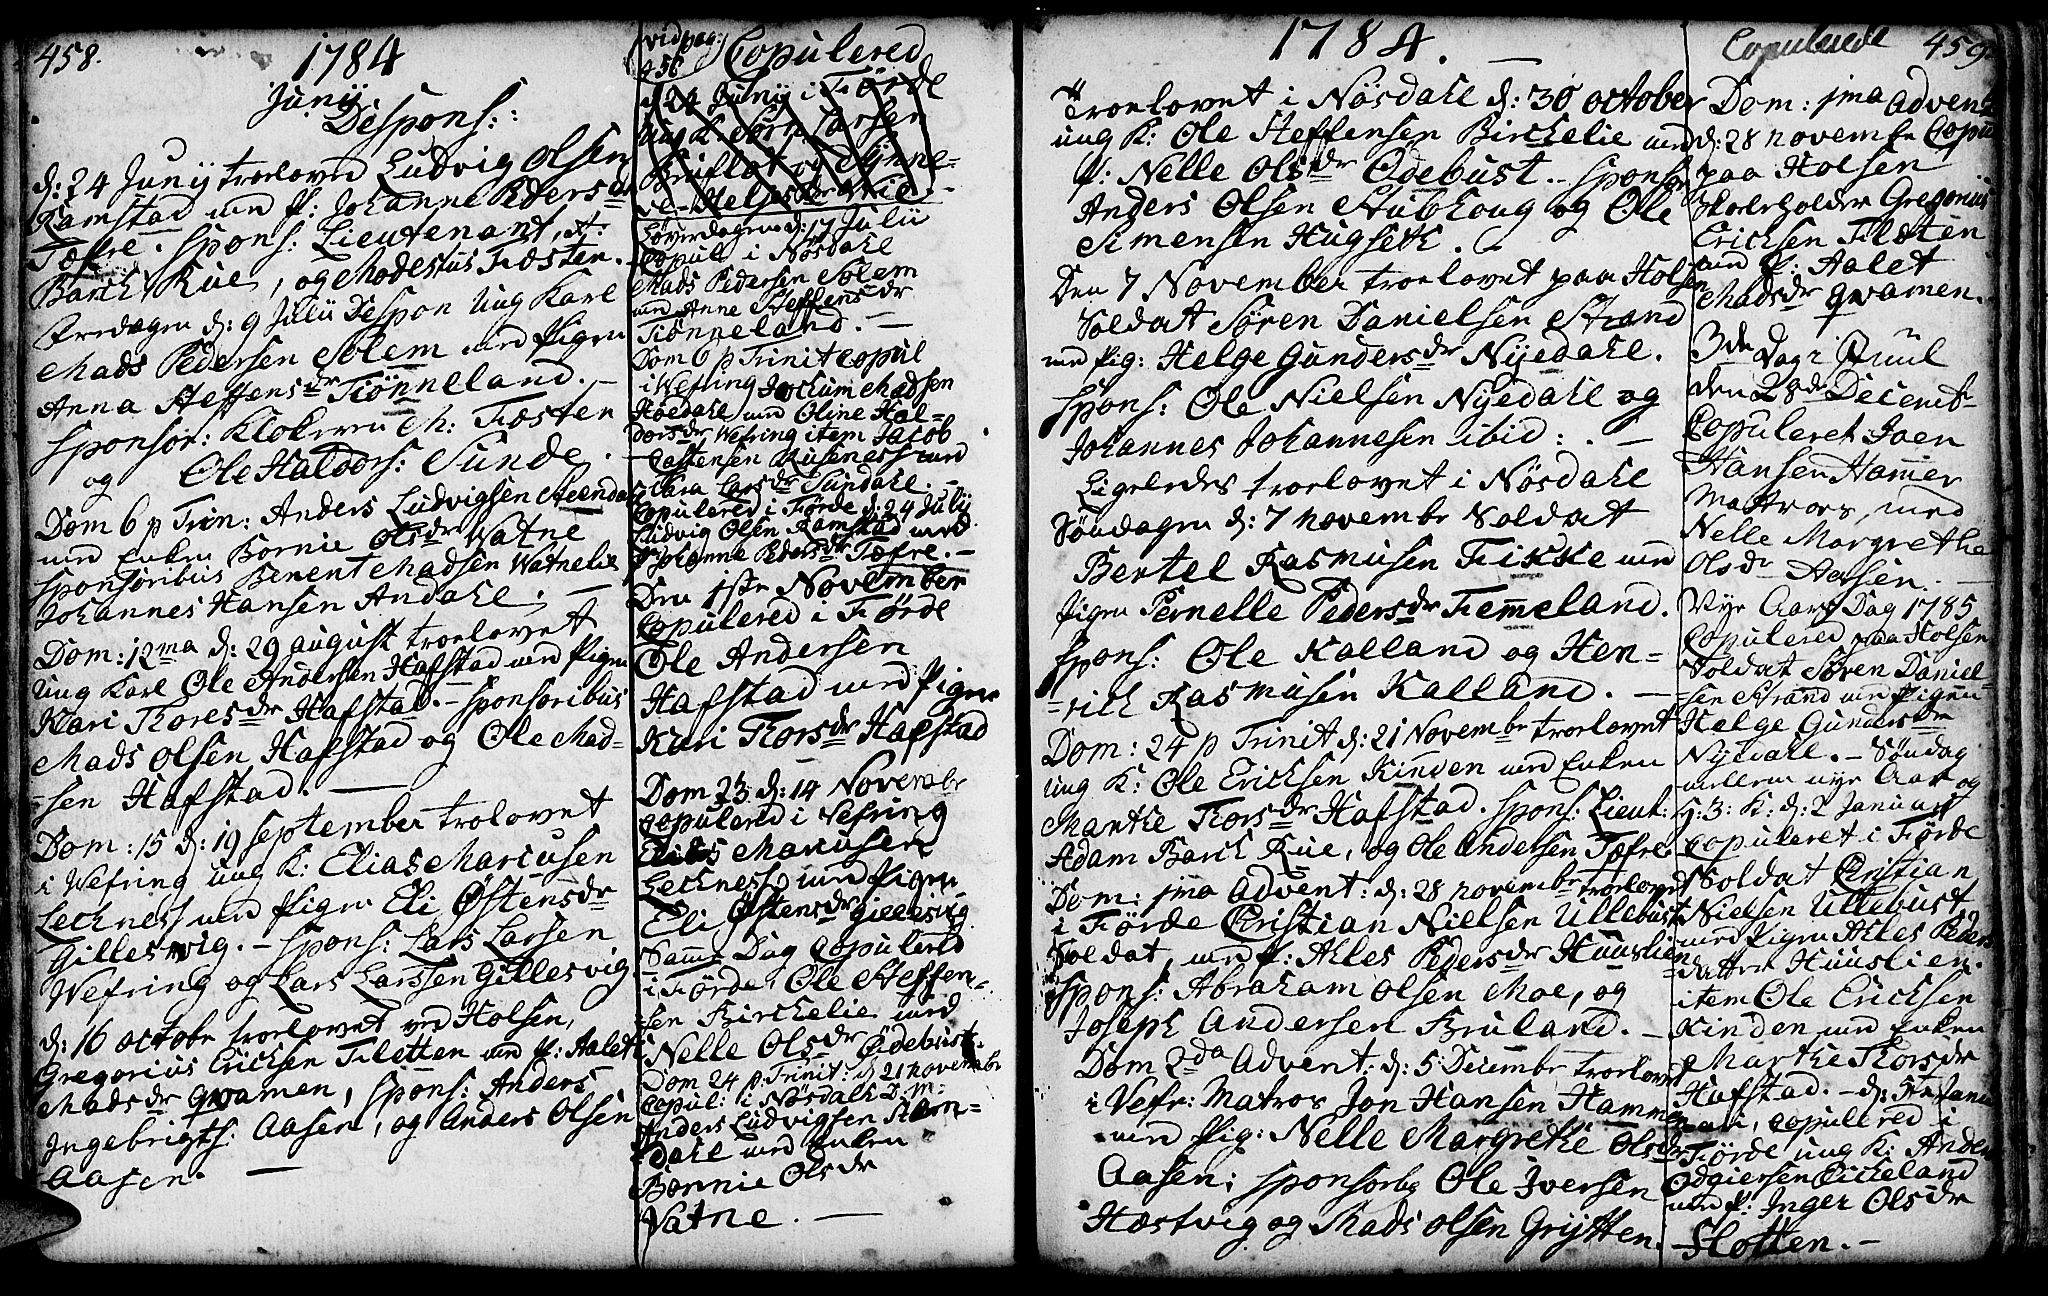 458.
1784
Junij
Despons:
d: 24 Junij troelovd Ludvig Olsen
Ramstad med P: Johanne Pedersdr
Tefre. spons: Lieutenant, A:
Barch Rue, og Modestus Fæsten.
Fredagen d: 9 Julii Despon Ung Karl
Mads Pedersen Solem med Pigen
Anna Steffensdr Tiønneland. —
sponsor: Klokeren M: Fæsten
og Ole Haldors: Sunde.
Dom 6 p Trin: Anders Ludvigsen Steendal
med Enken Bornie Olsdr Watne
sponsoribus Benent Madsen Watnelie
Johannes Hansen Andahl. —
Dom: 12ma d: 29 august troelovet
Ung Karl Ole Andersen Hafstad med Pigen
Kari Thoresdr Hafstad. — sponsoribus
Mads Olsen Hafstad og Ole Mad=
=sen Hafstad. —
Dom: 15 d: 19 september trolovet
i Wefring ung K: Elias Marcusen
Lechness med Pigen Eli Østensdr
Gillesvig. — spons: Lars Larsen
Wefring og Lars Larssen Gillesvig
d: 16 octobr troelovet ved Holsen,
Gregorius Ericksen Fletten med P: Aalet
Madsdr Qvamen, spons: Anders
Ingebrigts: Aasen, og Anders Olsen
Aasen. —
vid pag:
456
Copulered
d 24 Junij i Førde
Ung K: Larsen
Bruflot og Synne=
Løverdagen d: 17 Julii
Copul i Nøsdahl
Mads Pedersen Solem
med Anne Steffensdr
Tiønneland. —
Dom 6 p Trinit copul
i Wefring Jochum Madsen
Høedahl med Oline Hal=
dorsdr Wefring item Jacob
Castensen Kusenes med
Clara Larsdr Sundahl. —
Copulered i Førde d: 24 Julij
Ludvig Olsen Ramstad med
P Johanne Pedersdr Tefre. —
Den 1ste November
Copulered i Førde
Ole Andersen
Hafstad med Pigen
Kari Thorsdr Hafstad
Dom 23 d: 14 Novembr
copulered i Vefring
Elias Marcusen
Lechness med Pigen
Eli Østensdr Gillesvig
Samme Dag copulered
i Førde Ole Steffen=
=sen Birchelie med
Nelle Olsdr Ødebust.
Dom 24 p: Trinit: d: 21 novembr
Copul: i Nøsdahl
Anders Ludvigsen Steen=
dahl med Enken
Bornie Olsdr
Vatne. —
1784. —
Troelovet i Nøsdahl d: 30 october
ung K: Ole Steffensen Birchelie med
P: Nelle Olsdr Ødebust. — Sponsor
Anders Olsen Stubhoug og Ole
Simensen Hugseth.
Den 7 November troelovet paa Holsen
Soldat Søren Danielsen Strand
med Pig: Helge Gundersdr Nyedahl.
spons: Ole Nielsen Nyedahl og
Johannes Johannesen ibid: . —
Ligeledes troelovet i Nøsdahl
Søndagen d: 7 novembr Soldat
Bertel Rasmusen Fikke med
Pigen Pernelle Pedersdr Femmeland.
spons: Ole Kalland og Hen=
=rich Rasmusen Kalland. —
Dom: 24 p Trinit d: 21 Novembr troelovet
ung K: Ole Ericksen Kinden med Enken
Marthe Thorsdr Hafstad. Spons: Lieut:
Adam Barch Rue, og Ole Andersen Tefre.
Dom: 1ma Advent: d: 28 novembr troelovet
i Førde Christian Nielsen Ullebust
Soldat, med P: Ahles Pedersdr Huuslien
spons: Abraham Olsen Moe, og
Joseph Andersen Bruland. —
Dom 2da Advent: d: 5 Decembr troelovet
i Vefr: Matros Jon Hansen Hammer
med Pig: Nelle Margrethe Olsdr
Aasen; sponsorb Ole Iversen
Hæstvig og Mads Olsen Grytten.
Copulerede
459.
Dom: 1ma Advent
d: 28 novembr Copul
paa Holsen
Skoleholder Gregorius
Ericksen Fletten
med P: Aalet
Madsdr Qvamen.
3de Dag i Juul
den 28de Decemb
Copuleret Joen
Hansen Hammer
Mattros, med
Nelle Margrethe
Olsdr Aasen. —
Nye Aars Dag 1785
Copulered paa Holsen
Soldat Søren Daniel=
=sen Strand med Pigen
Helge Gundersdr
Nyedahl. — Søndag
mellem nye Aar og
H: 3: K: d: 2 Januari
Copuleret i Førde
Soldat Christian
Nielsen Ullebust
med Pigen Ahles Peders
datter Huuslien.
item Ole Ericksen
Kinden med Enken
Marthe Thorsdr
Hafstad. — d: 5te Janu
ari, copulered i
Førde ung K: Anders
Odgiersen Eicheland
med P: Inger Olsdr
Slotten. —